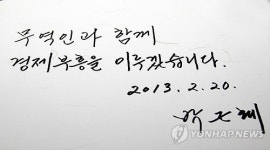 무역인과 함께
경제부흥을 이루겠습니다.
2013. 2. 20.
박근혜
YONHAP NEWS